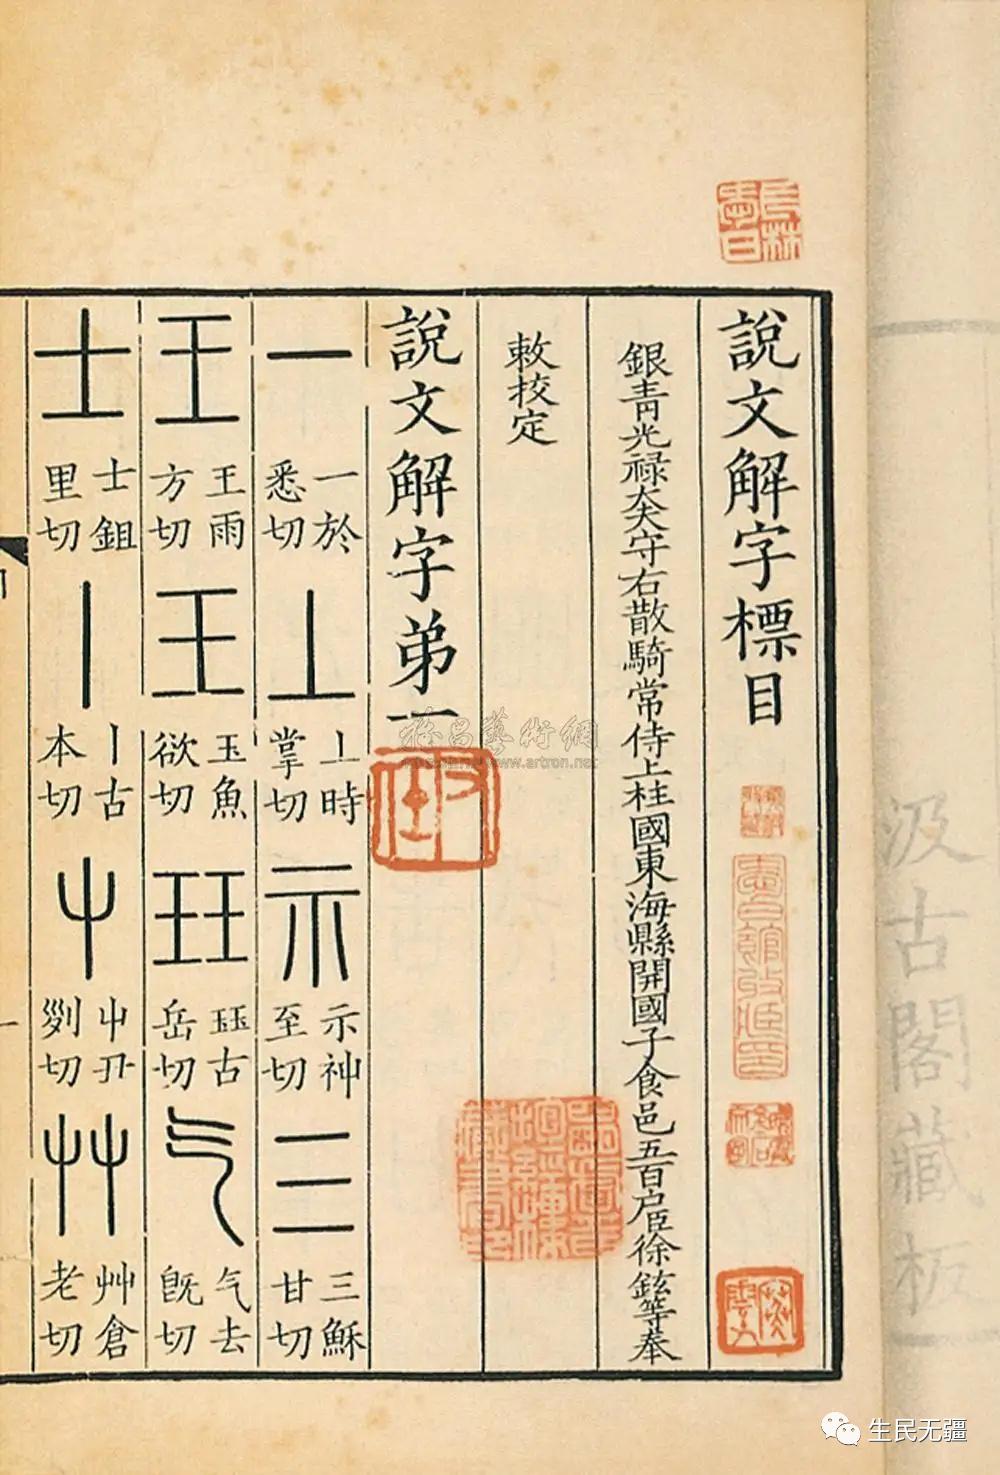 說文解字標目
銀青光祿大夫守右散騎常侍上柱國東海縣開國子食邑五百户臣徐鉉等奉
敕校定
說文解字弟一
一 一於悉切 丄 丄時掌切 示 示神至切 三 三穌甘切
王 王雨方切 王 玉魚欲切 玨 玨古岳切 气 气去旣切
士 士鉏里切 丨 丨古本切 屮 屮丑列切 艸 艸倉老切
汲古閣藏板
www.artron.net
生民无疆